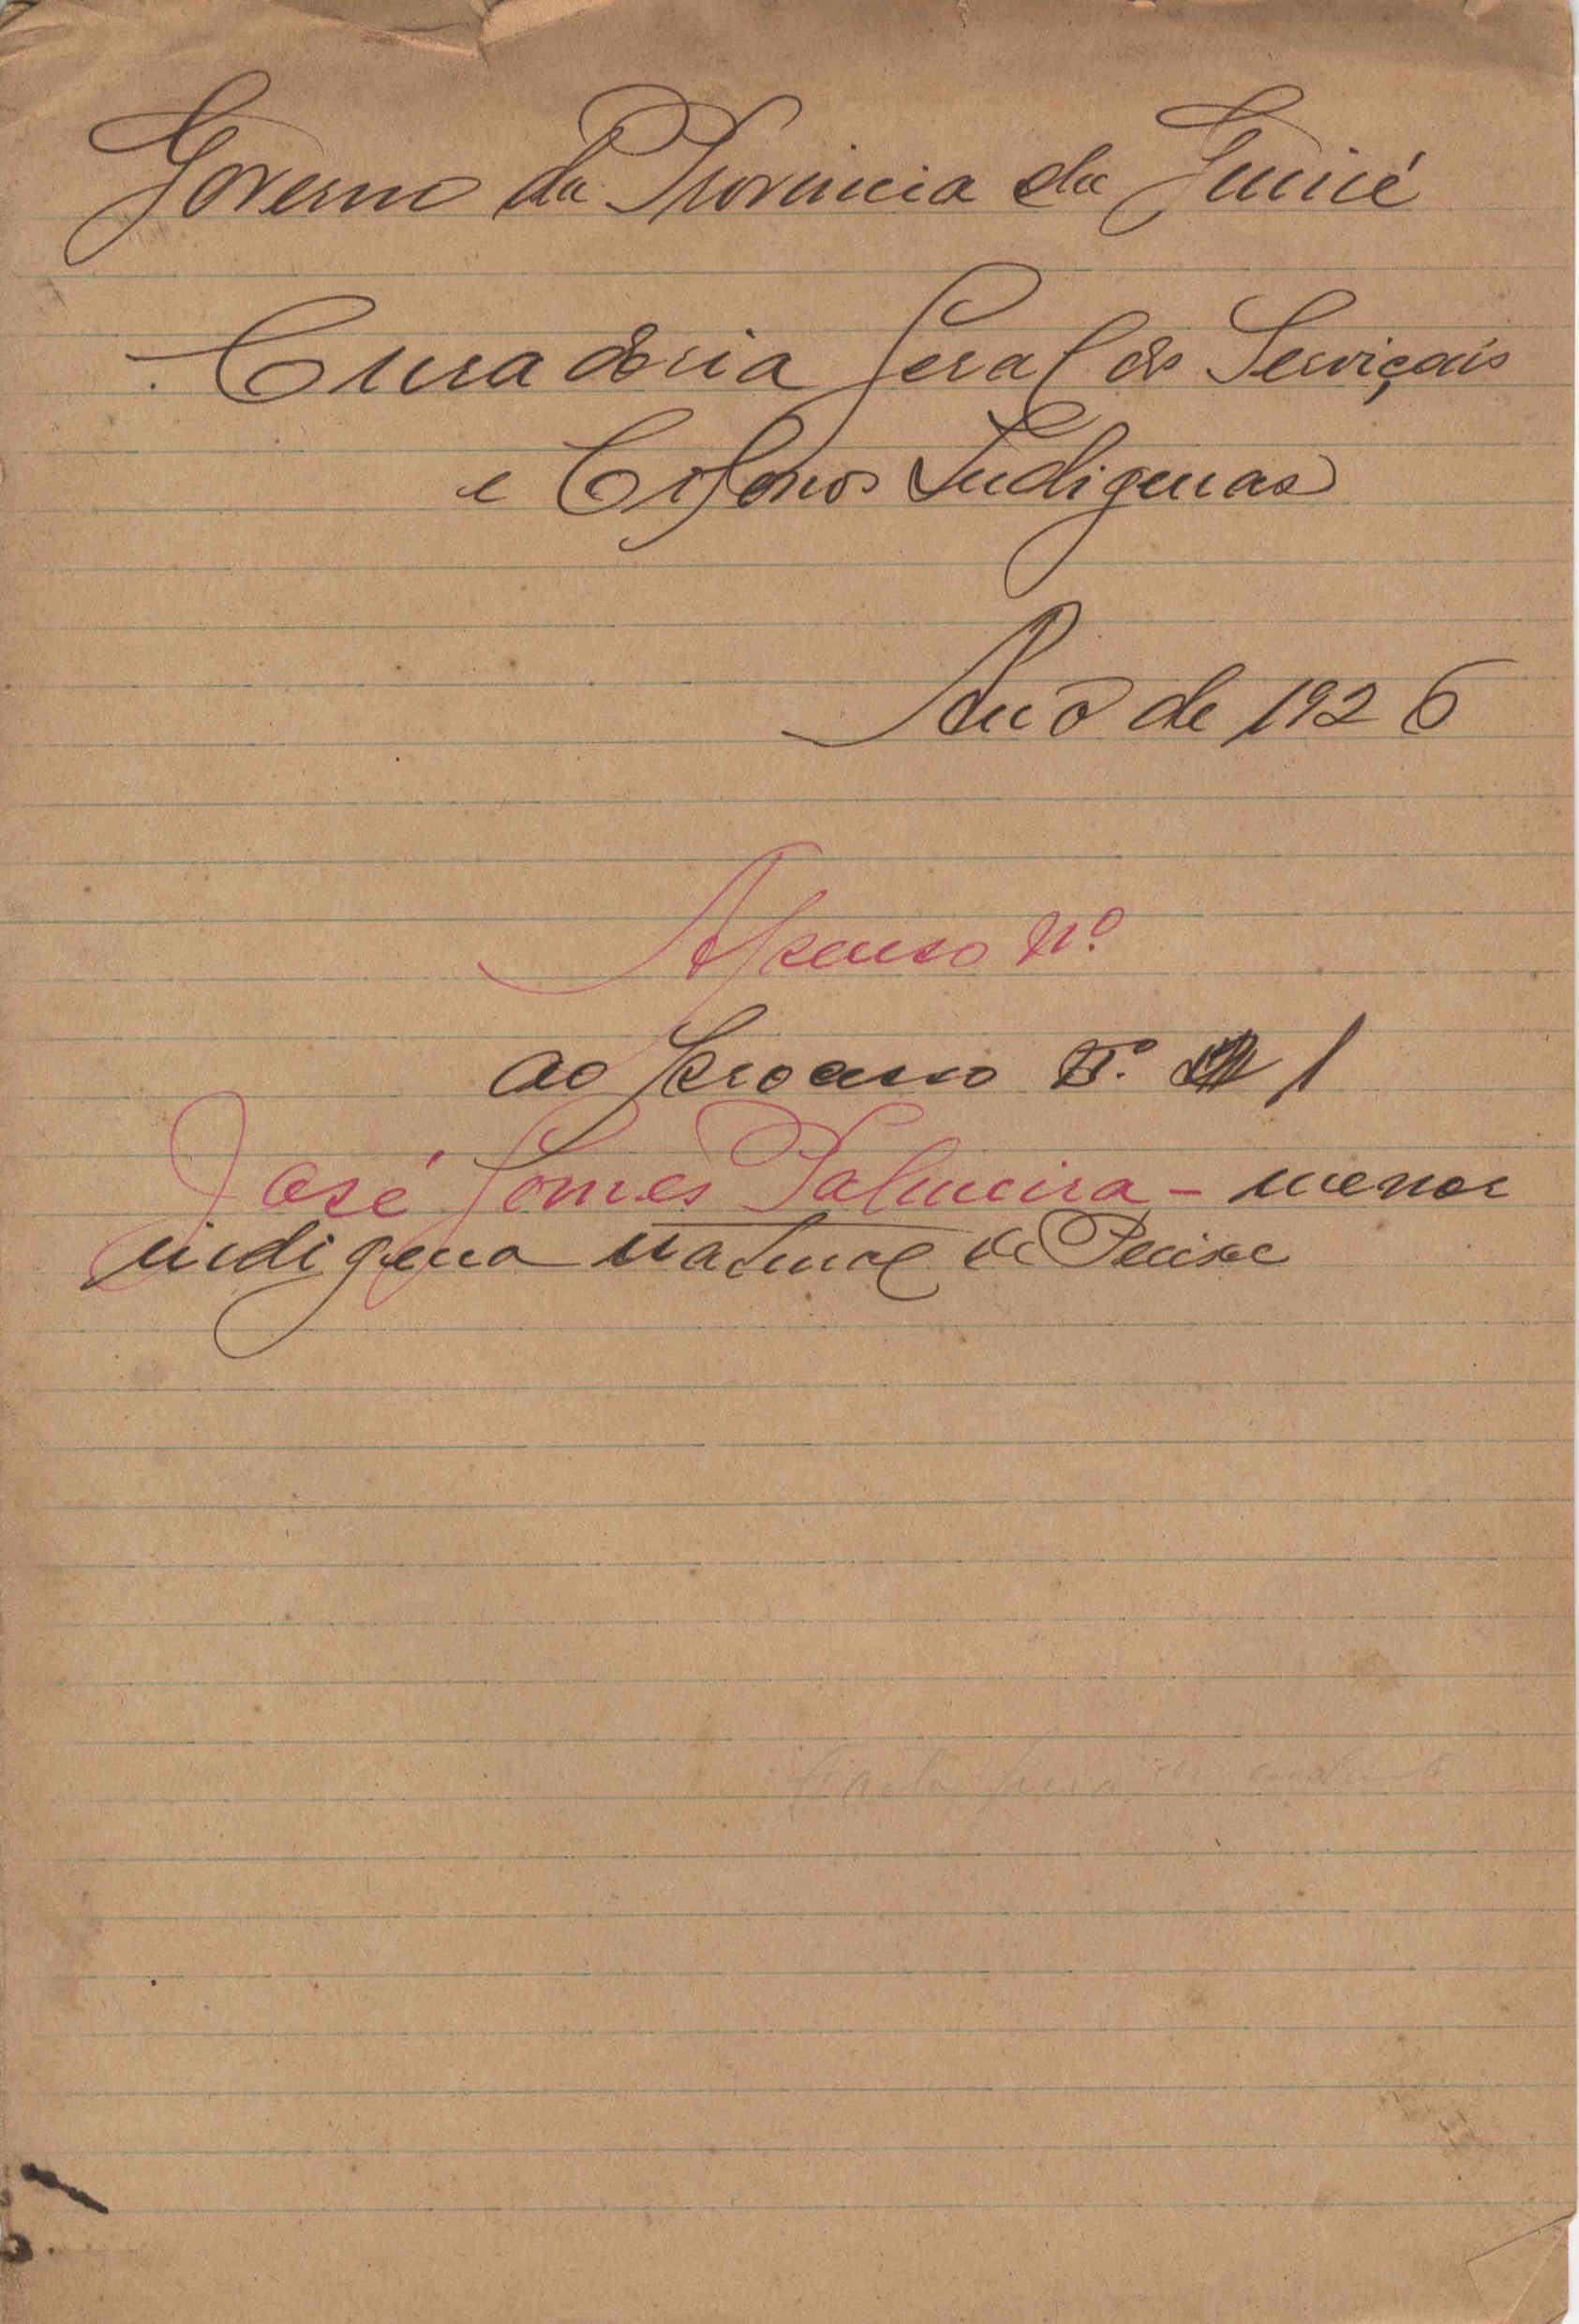 Governo da Provincia da Guiné
Curadoria Geral dos Serviçais
e Colonos Indigenas
Ano de 1926
Apenso Nº
ao Processo Nº 1
José Gomes Palmeira - menor
indigena natural de Pecixe